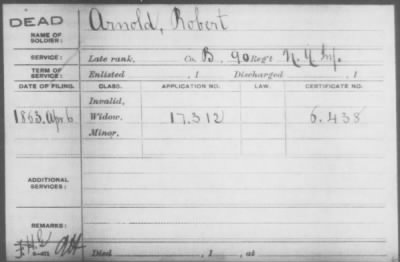 DEAD
NAME OF SOLDIER: Arnold, Robert
SERVICE: Late rank, Co. B. 90 Reg't N.Y. Inf.
TERM OF SERVICE: Enlisted , 1 Discharged , 1
DATE OF FILING. CLASS. APPLICATION NO. LAW. CERTIFICATE NO.
Invalid,
1863. Apr 6 Widow, 17.312 6.438
Minor,
ADDITIONAL SERVICES:
REMARKS:
Died , 1 , at